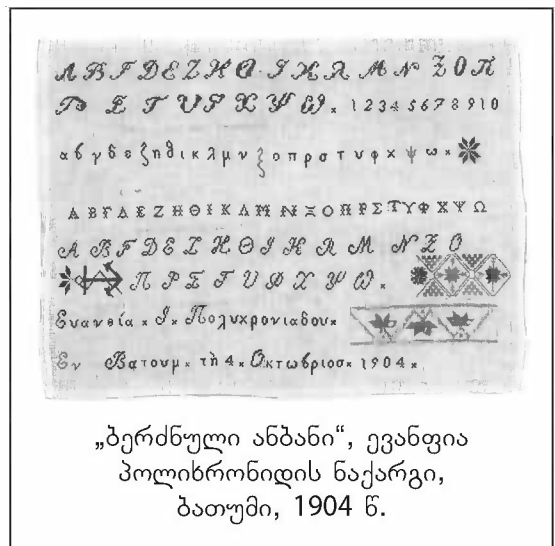 Α Β Γ Δ Ε Ζ Η Θ Ι Κ Λ Μ Ν Ξ Ο Π
Ρ Σ Τ Υ Φ Χ Ψ Ω × 1 2 3 4 5 6 7 8 9 10
α β γ δ ε ζ η θ ι κ λ μ ν ξ ο π ρ σ τ υ φ χ ψ ω ×
Α Β Γ Δ Ε Ζ Η Θ Ι Κ Λ Μ Ν Ξ Ο Π Ρ Σ Τ Υ Φ Χ Ψ Ω
Α Β Γ Δ Ε Ζ Η Θ Ι Κ Λ Μ Ν Ξ Ο
Π Ρ Σ Τ Υ Φ Χ Ψ Ω ×
Ευανθία × Ι × Πολυχρονιαδου ×
Εν Βατουμ × τὴ 4 × Οκτωβριοσ × 1904 ×
„ბერძნული ანბანი“, ევანფია
პოლიხრონიდის ნაქარგი,
ბათუმი, 1904 წ.